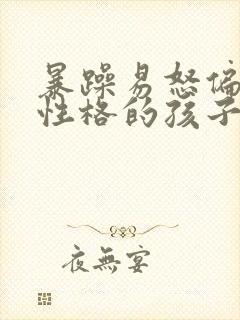 暴躁易怒偏
性格的孩子
夜無宴